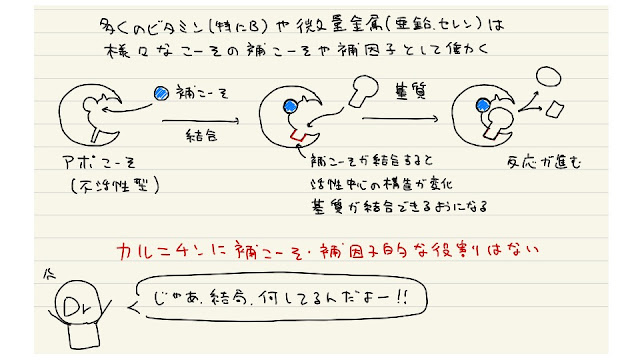 多くのビタミン(特にB)や微量金属(亜鉛、セレン)は
様々なこーその補こーそや補因子として働く
補こーそ
基質
結合
アポこーそ
(不活性型)
補こーそが結合すると
活性中心の構造が変化
基質が結合できるようになる
反応が進む
カルニチンに補こーそ・補因子的な役割はない
Dr
じゃあ、結局、何してるんだよー!!